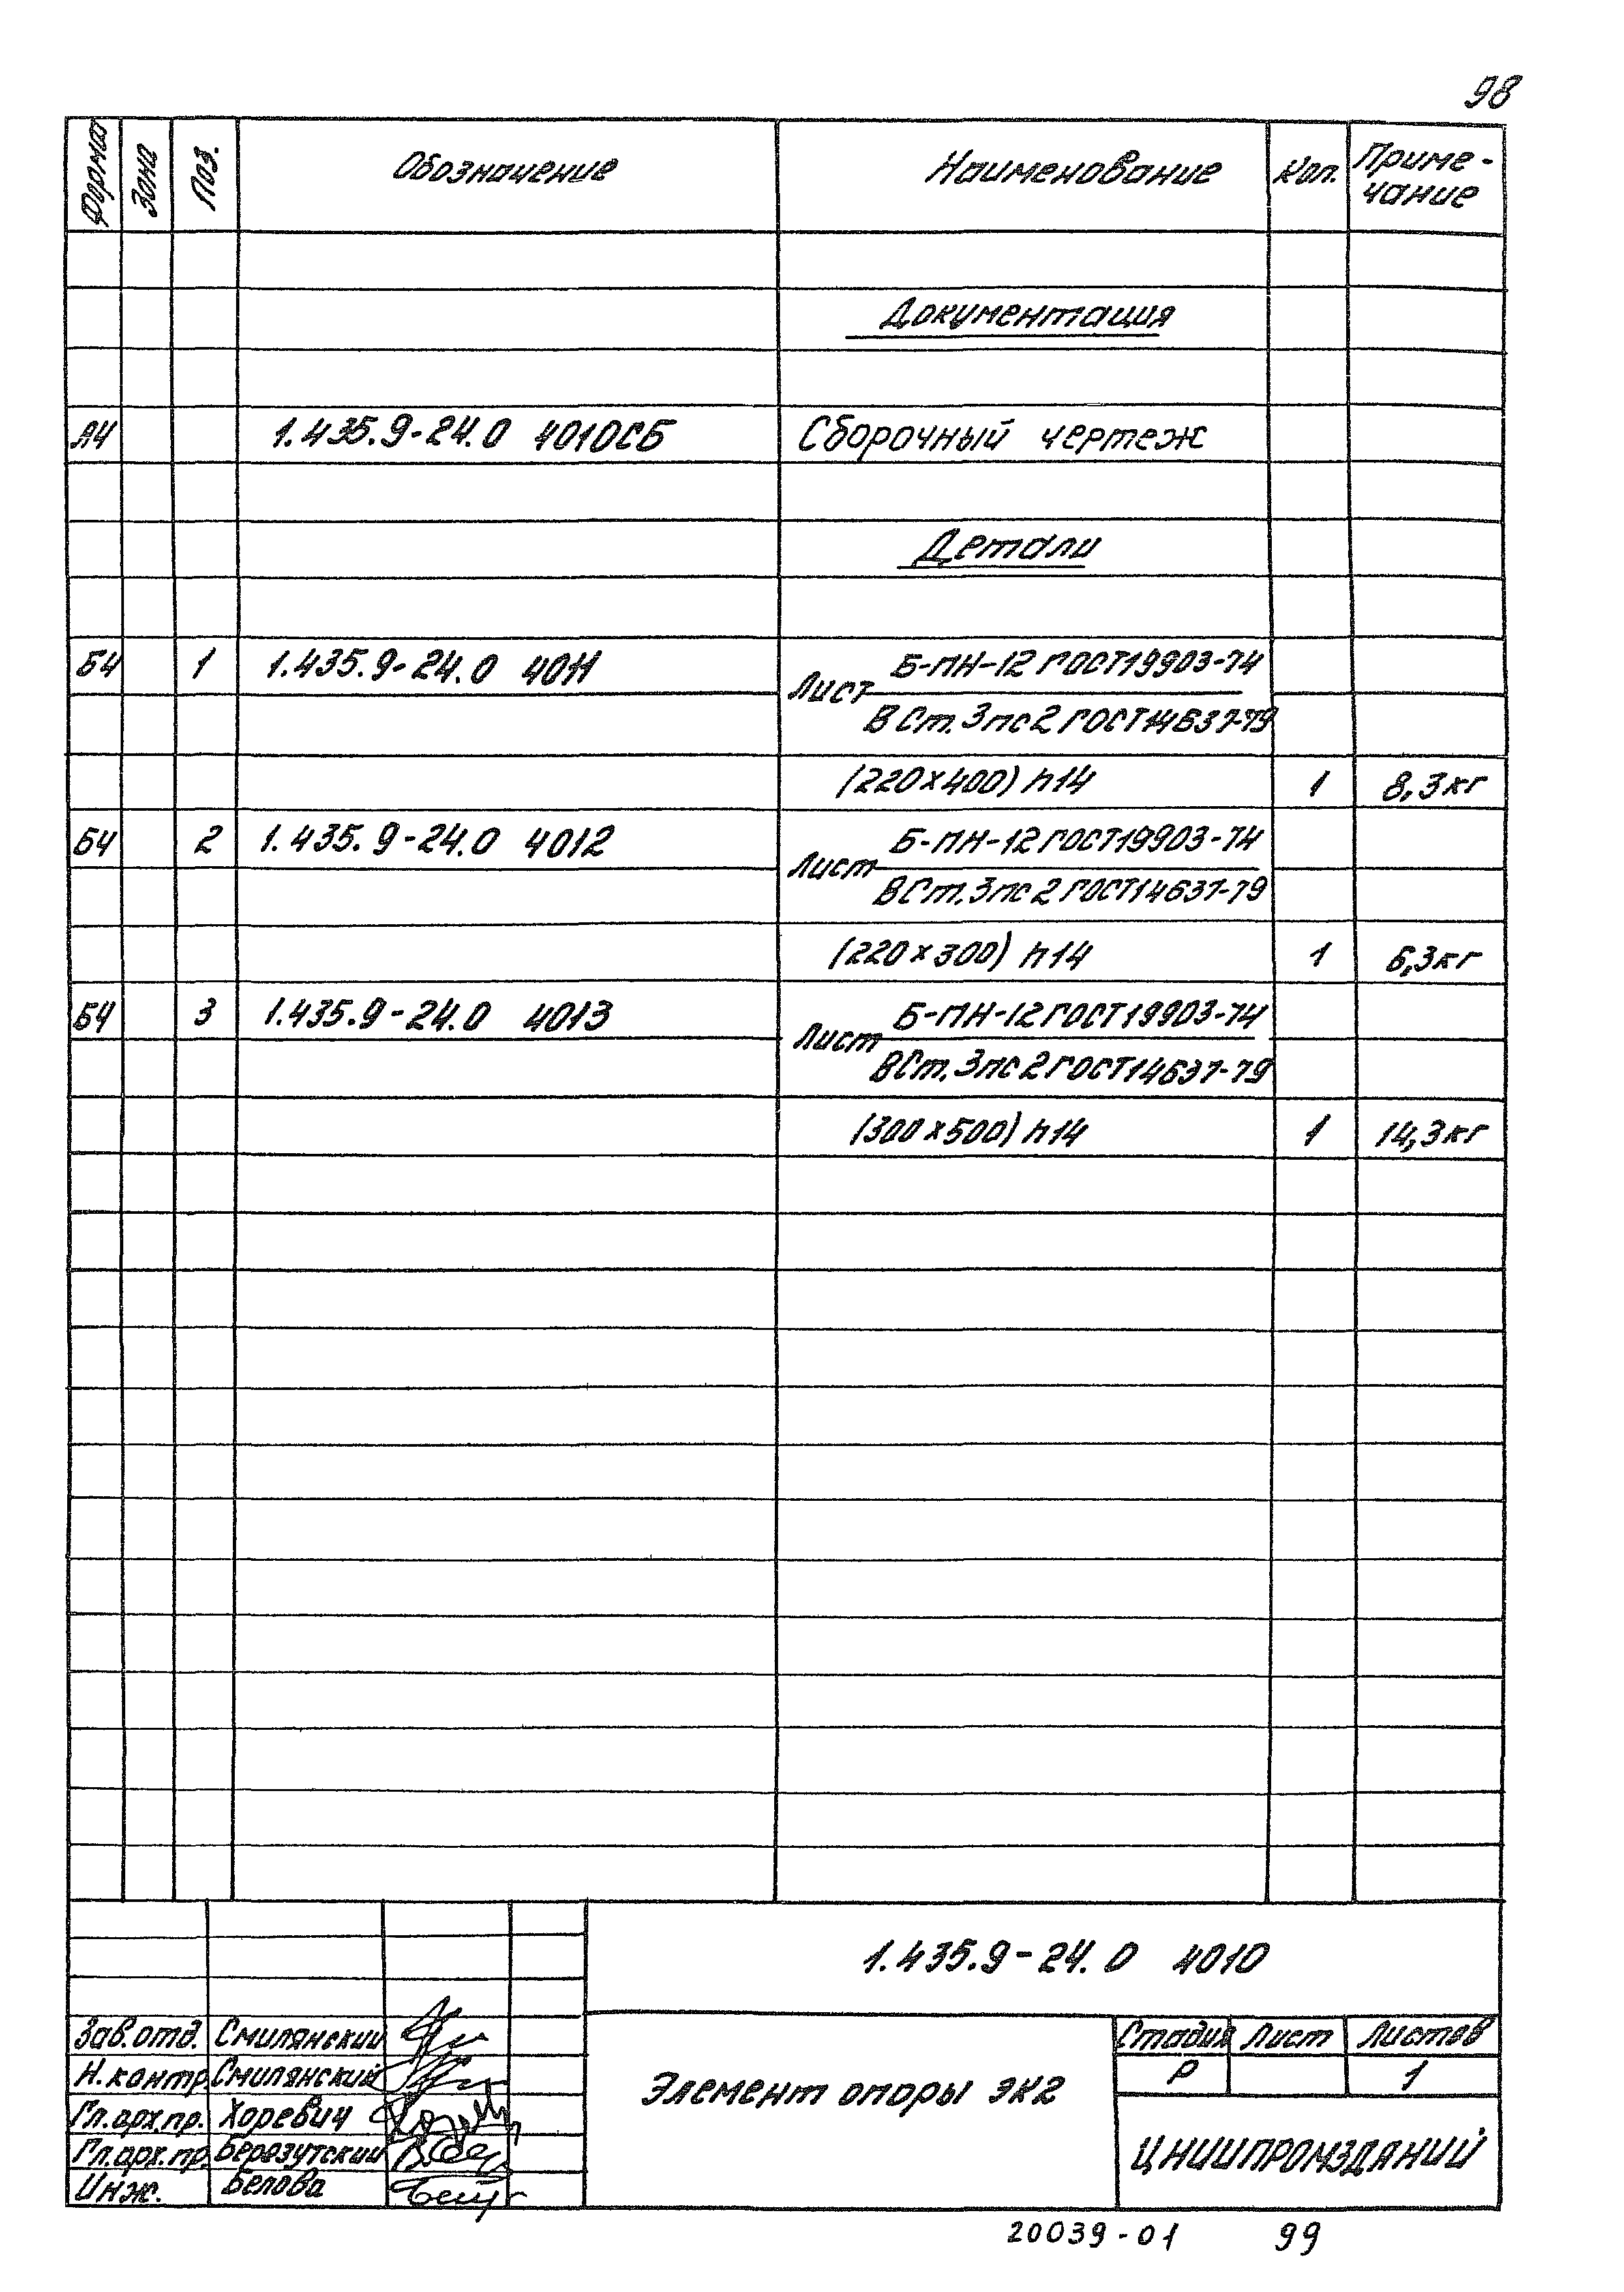 98
Формат Зона Поз. Обозначение Наименование Кол. Приме-
чание
Документация
А4 1.435.9-24.0 4010СБ Сборочный чертеж
Детали
БЧ 1 1.435.9-24.0 4011 Лист Б-ПН-12 ГОСТ19903-74
ВСт.3пс2 ГОСТ14637-79
(220х400) h14 1 8,3кг
БЧ 2 1.435.9-24.0 4012 Лист Б-ПН-12 ГОСТ19903-74
ВСт.3пс2 ГОСТ14637-79
(220х300) h14 1 6,3кг
БЧ 3 1.435.9-24.0 4013 Лист Б-ПН-12 ГОСТ19903-74
ВСт.3пс2 ГОСТ14637-79
(300х500) h14 1 14,3кг
1.435.9-24.0 4010
Зав.отд. Смилянский
Н.контр Смилянский
Гл.арх.пр. Хоревич
Гл.арх.пр. Берязутский
Инж. Белова
Элемент опоры ЭК2
Стадия Лист Листов
Р 1
ЦНИИПРОМЗДАНИЙ
20039-01 99